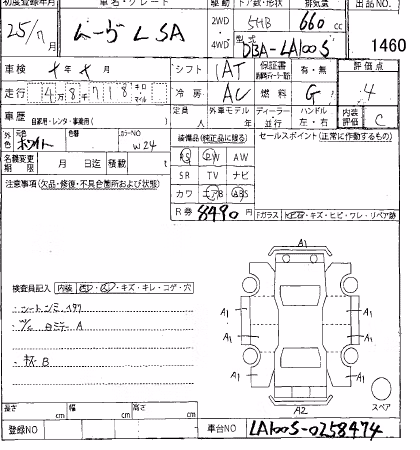 初度登録年月 車名・グレード 駆動 ドア数・形状 排気量 出品NO.
25/7 ムーヴ L SA 2WD 5HB 660 cc
4WD 型式 DBA-LA100S 1460
車検 年 月 シフト AT 保証書 有・無 評価点
走行 4万8千718 キロ マイル 冷房 AC 燃料 G 4
車歴 自家用・レンタ・事業用( ) 定員 人 外車モデル 年 ディーラー 並行 ハンドル 左・右 内装評価 C
外色 元色 ホワイト 色替 カラーNO W24
装備品(純正品に限る) セールスポイント(正常に動作するもの)
PS PW AW
名義変更期限 月 日迄 積載 t
SR TV ナビ
注意事項(欠品・修復・不具合箇所および状態)
カワ エアB ABS
R券 8490 円
Fガラス キズ・ヒビ・ワレ・リペア跡
検査員記入 内装 キズ・キレ・コゲ・穴
A1
A1 A1
A1 A1
キズ B
A1 A1
A2
スペア
長さ cm 幅 cm 高さ cm
登録NO 車台NO LA100S-0258474